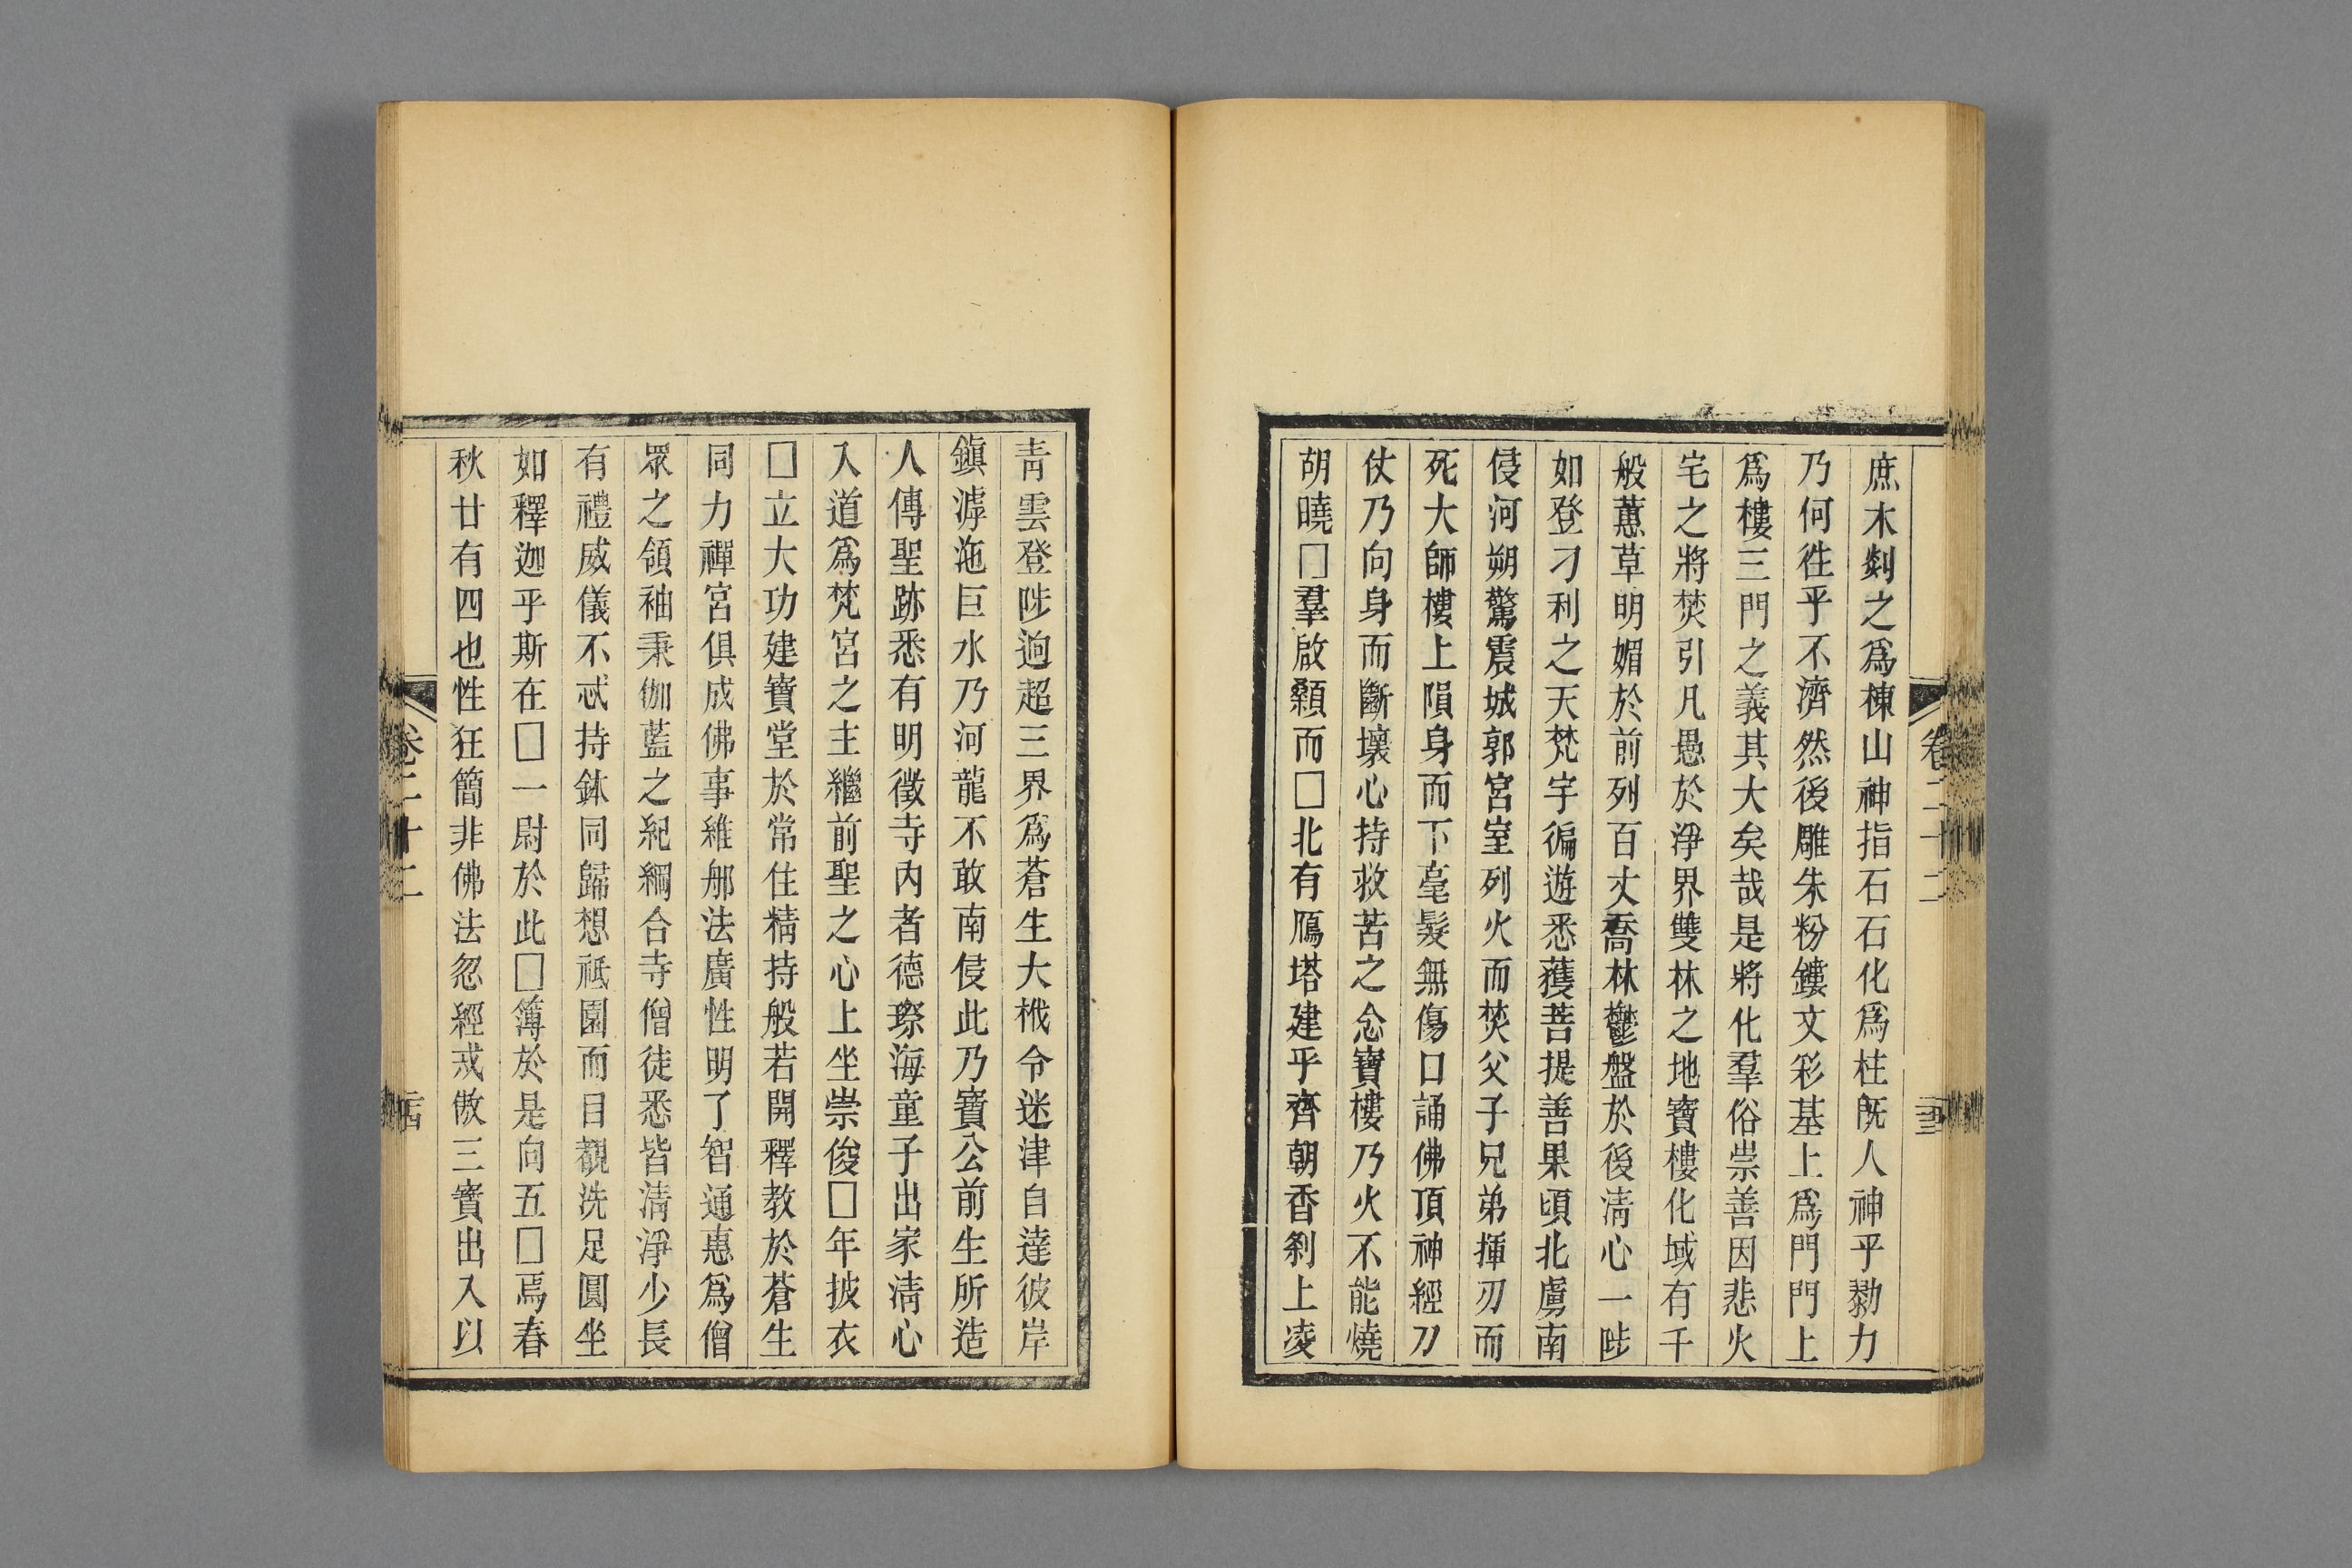 庶木剡之爲棟山神指石石化爲柱旣人神乎勠力
乃何徃乎不濟然後雕朱粉鏤文彩基上爲門門上
爲樓三門之義其大矣哉是將化羣俗崇善因悲火
宅之將焚引凡愚於淨界雙林之地寶樓化域有千
般蕙草明媚於前列百丈喬林鬱盤於後淸心一陟
如登刁利之天梵宇徧遊悉獲菩提善果頃北虜南
侵河朔驚震城郭宮室列火而焚父子兄弟揮刃而
死大師樓上隕身而下毫髮無傷口誦佛頂神經刀
仗乃向身而斷壞心持救苦之念寶樓乃火不能燒
胡曉□羣啟顙而□北有鴈塔建乎齊朝香刹上凌
卷二十二
靑雲登陟逈超三界爲蒼生大栰令迷津自達彼岸
鎭滹沲巨水乃河龍不敢南侵此乃寶公前生所造
人傳聖跡悉有明徵寺內者德瑔海童子出家淸心
入道爲梵宮之主繼前聖之心上坐崇俊□年披衣
□立大功建寶堂於常住精持般若開釋教於蒼生
同力禪宮俱成佛事維那法廣性明了智通惠爲僧
眾之領袖秉伽藍之紀綱合寺僧徒悉皆淸淨少長
有禮威儀不忒持鉢同歸想祇園而目覩洗足圓坐
如釋迦乎斯在□一尉於此□簿於是向五□焉春
秋廿有四也性狂簡非佛法忽經戎傲三寶出入以
卷二十二